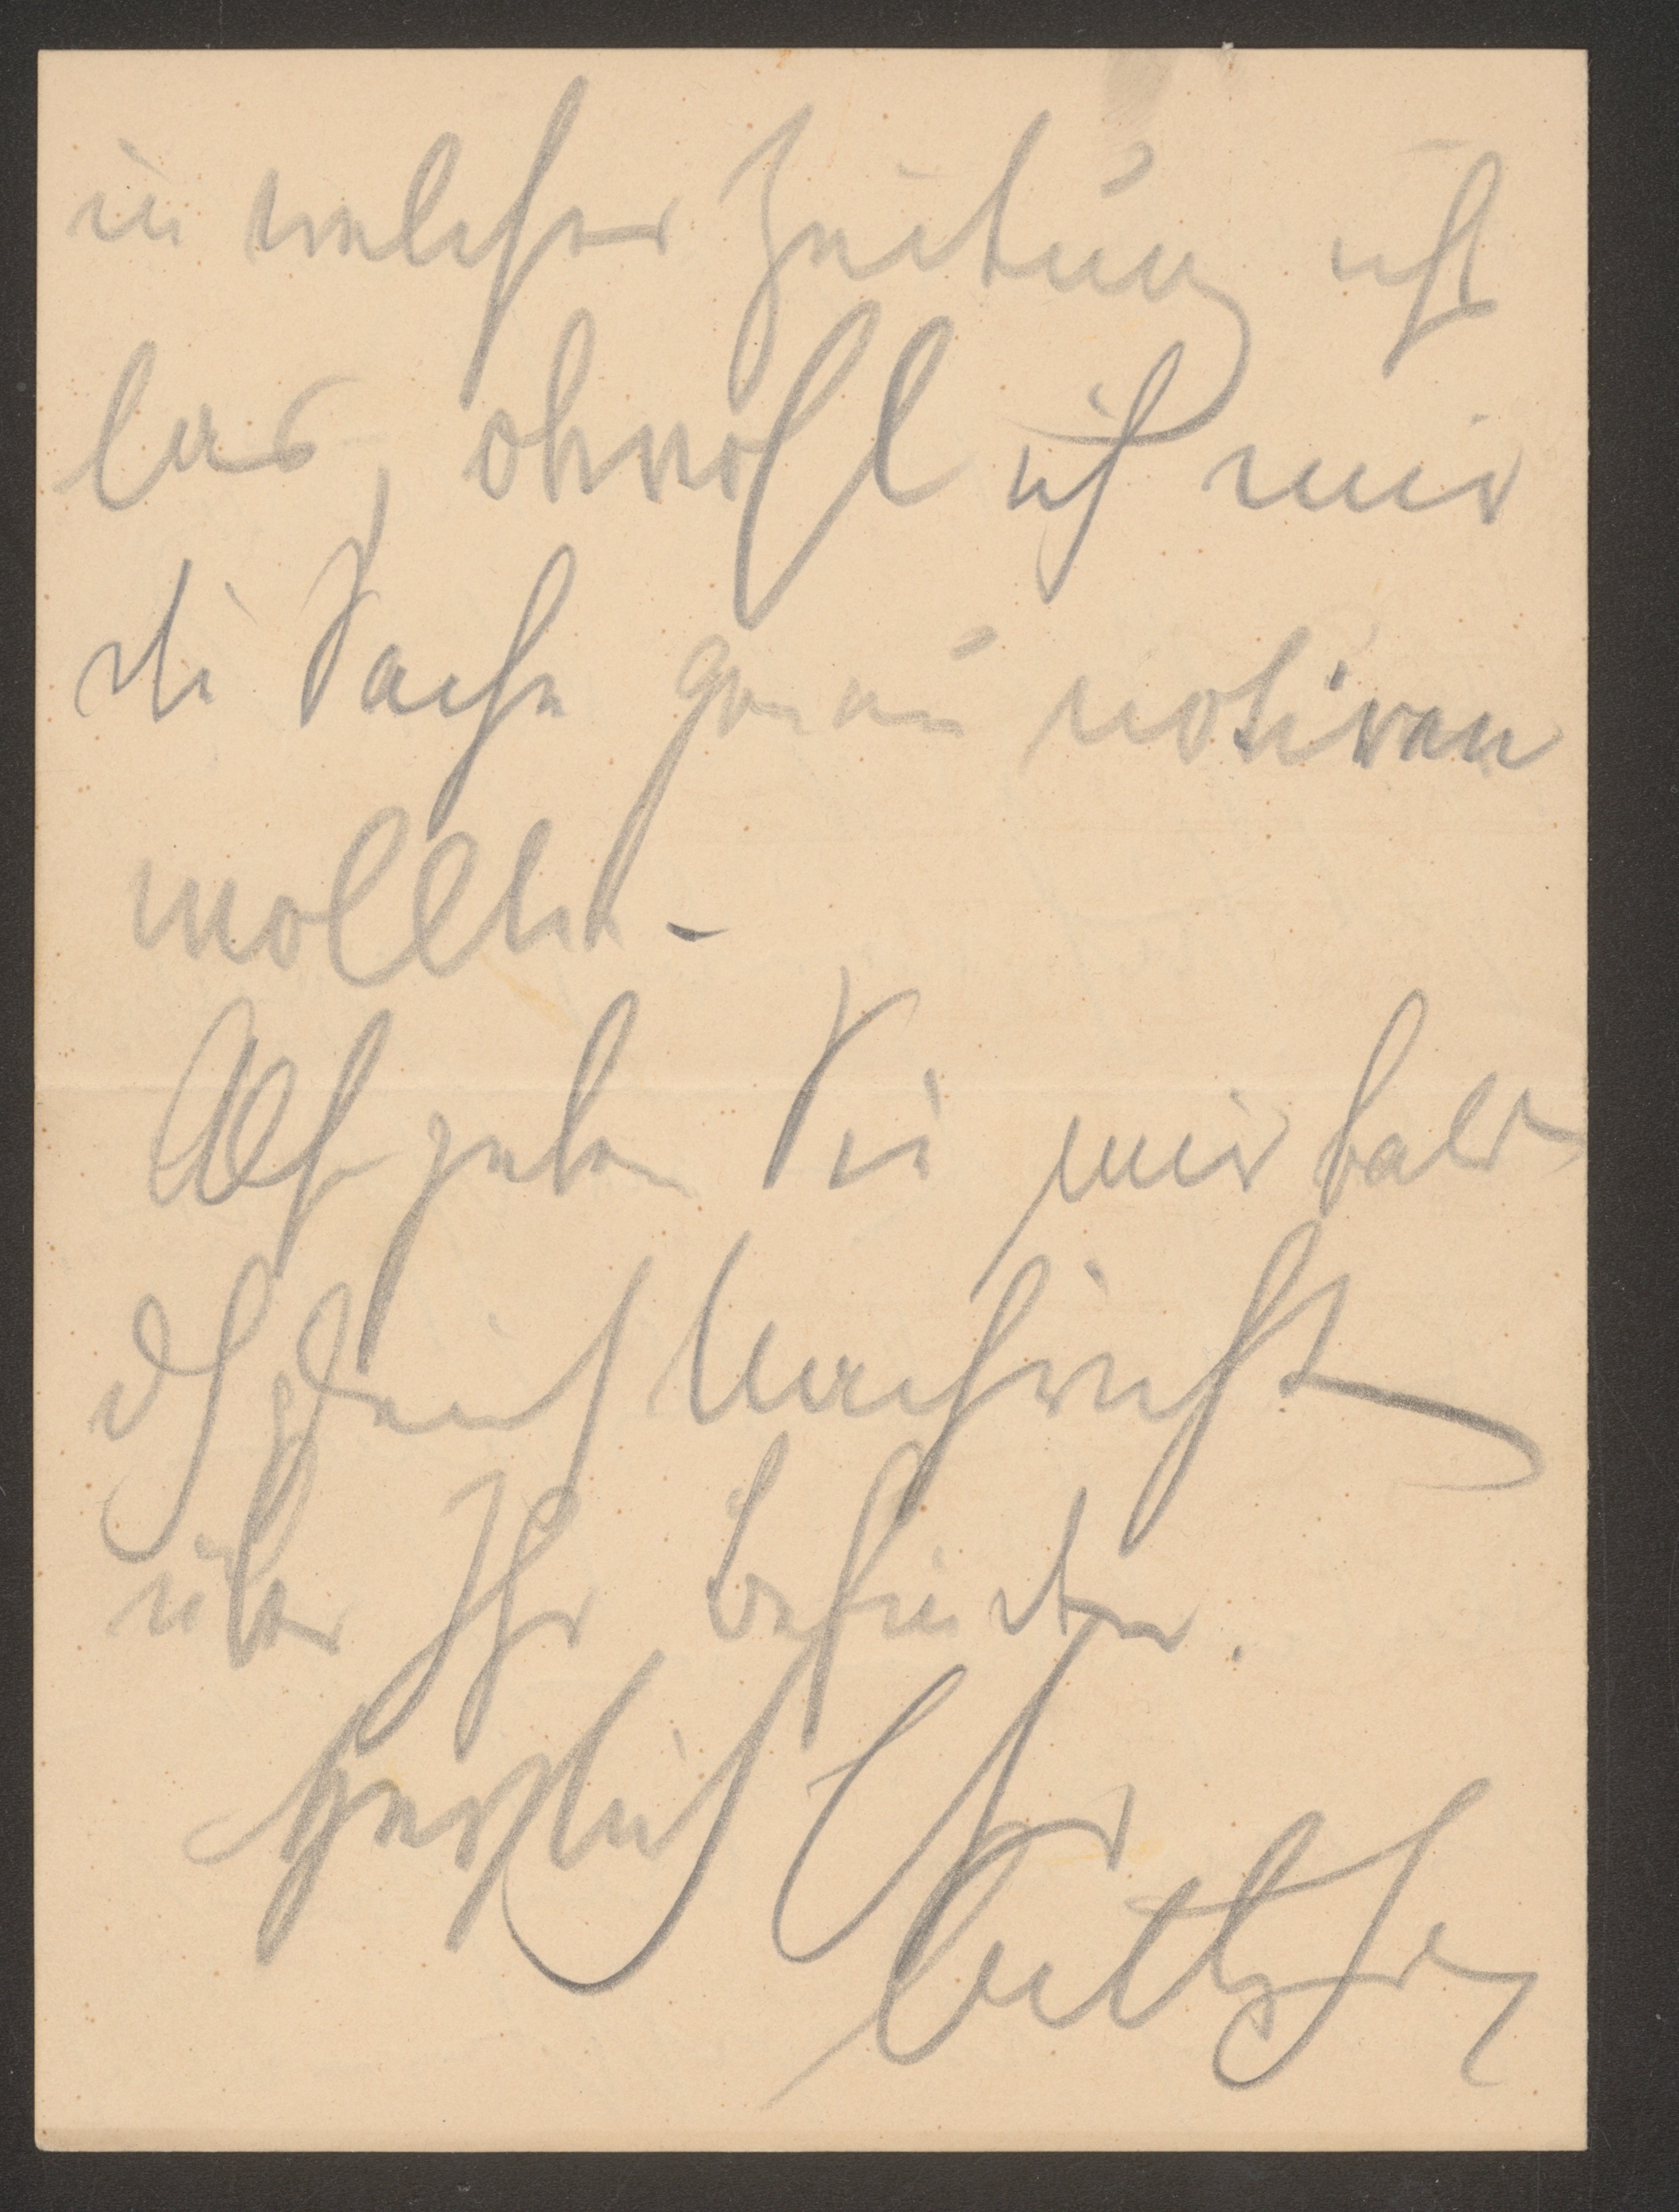 in welcher Zeitung ich's
las, obwohl ich mir
die Sache genau notiren
wollte. –
Also geben Sie mir bald
Nachricht
über Ihr Befinden.
Herzlich Ihr